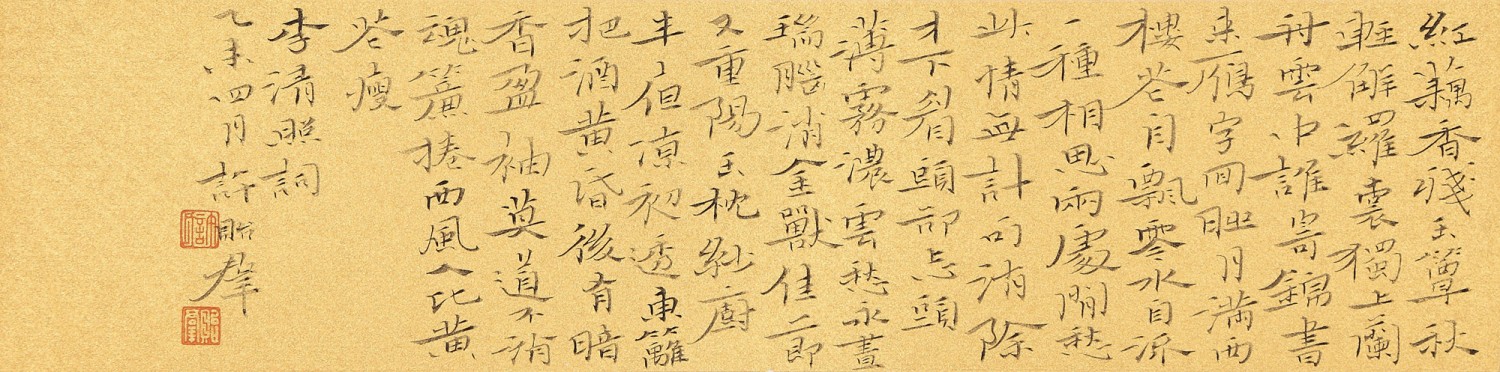 紅藕香殘玉簟秋
輕解羅裳獨上蘭
舟雲中誰寄錦書
來雁字回時月滿西
樓花自飄零水自流
一種相思兩處閒愁
此情無計可消除
才下眉頭卻上心頭
薄霧濃雲愁永晝
瑞腦消金獸佳節
又重陽玉枕紗廚
半涼初透東籬
把酒黃昏後有暗
香盈袖莫道不消
魂簾捲西風人比黃
花瘦
李清照詞
乙未四月許貽羣